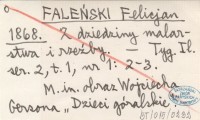 FALEŃSKI Felicjan
1868. Z dziedziny malar-
stwa i rzeźby. Tyg. Il.
ser. 2, t. 1, nr 1: 2-3.
M. in. obraz Wojciecha
Gersona "Dzieci góralskie"